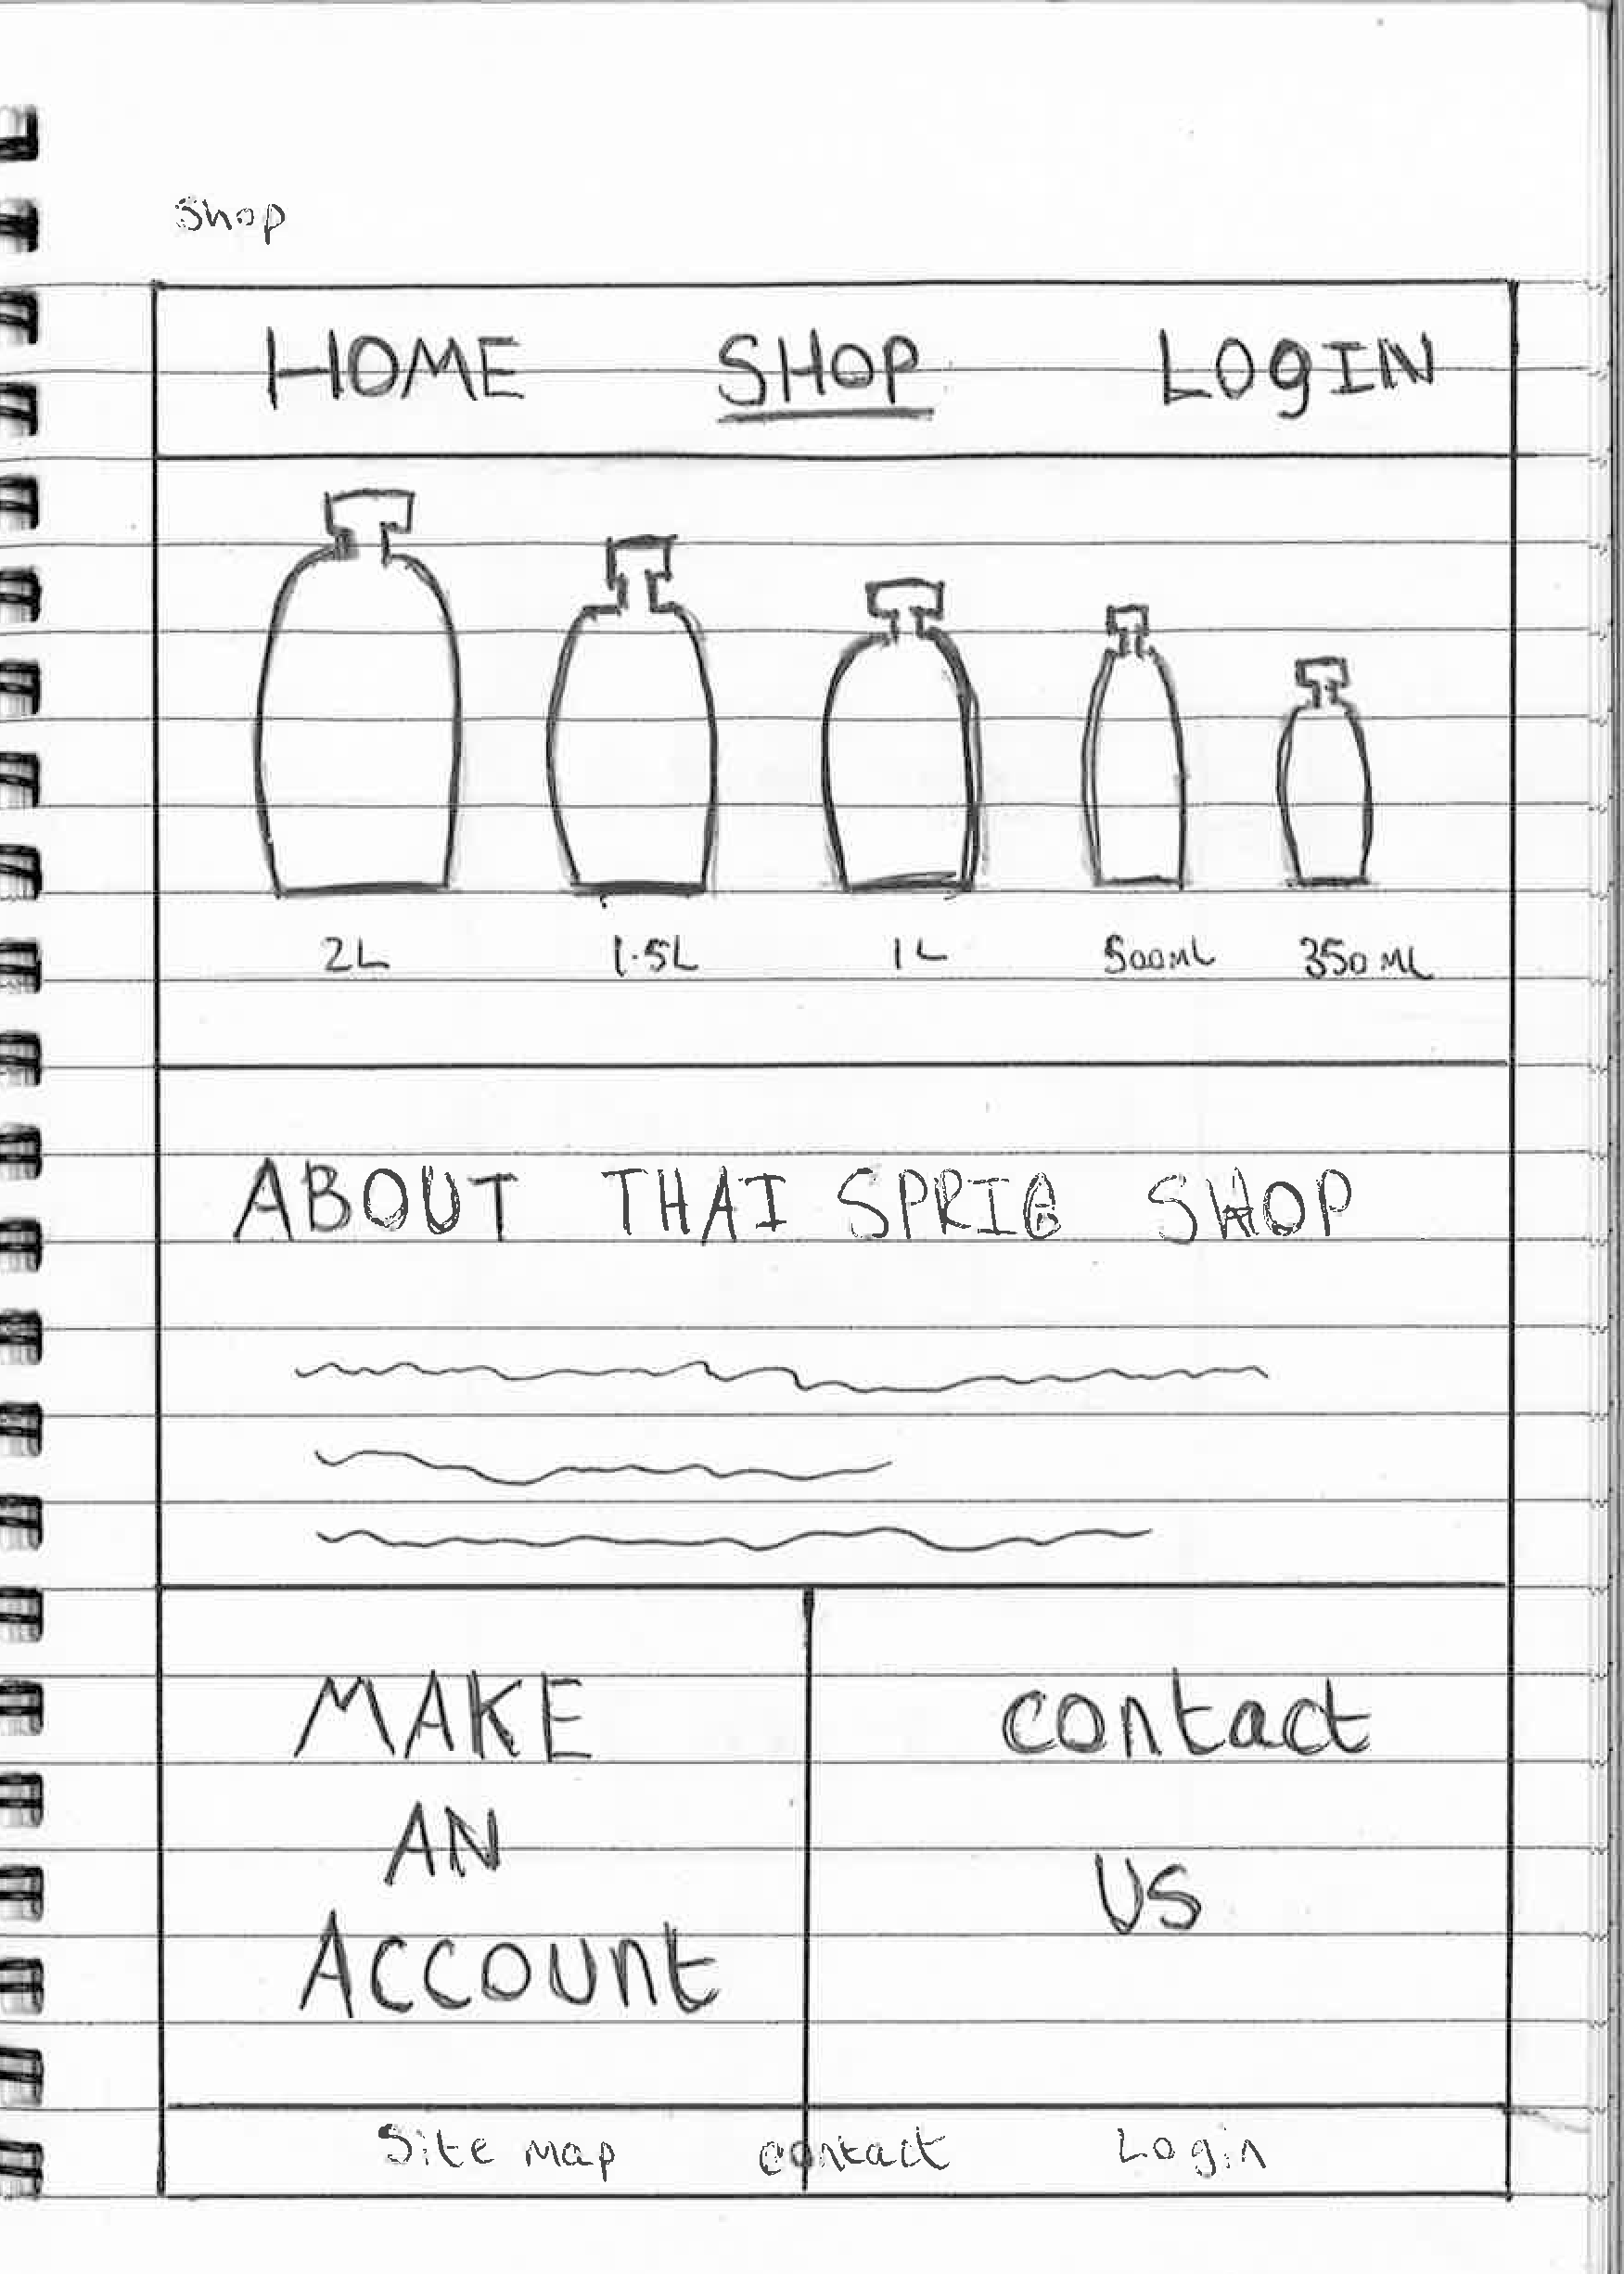 Shop
HOME SHOP LOGIN
2L 1.5L 1L 500ML 350ML
ABOUT THAI SPRIG SHOP
MAKE
AN
ACCOUNt
contact
US
Site Map contact Login